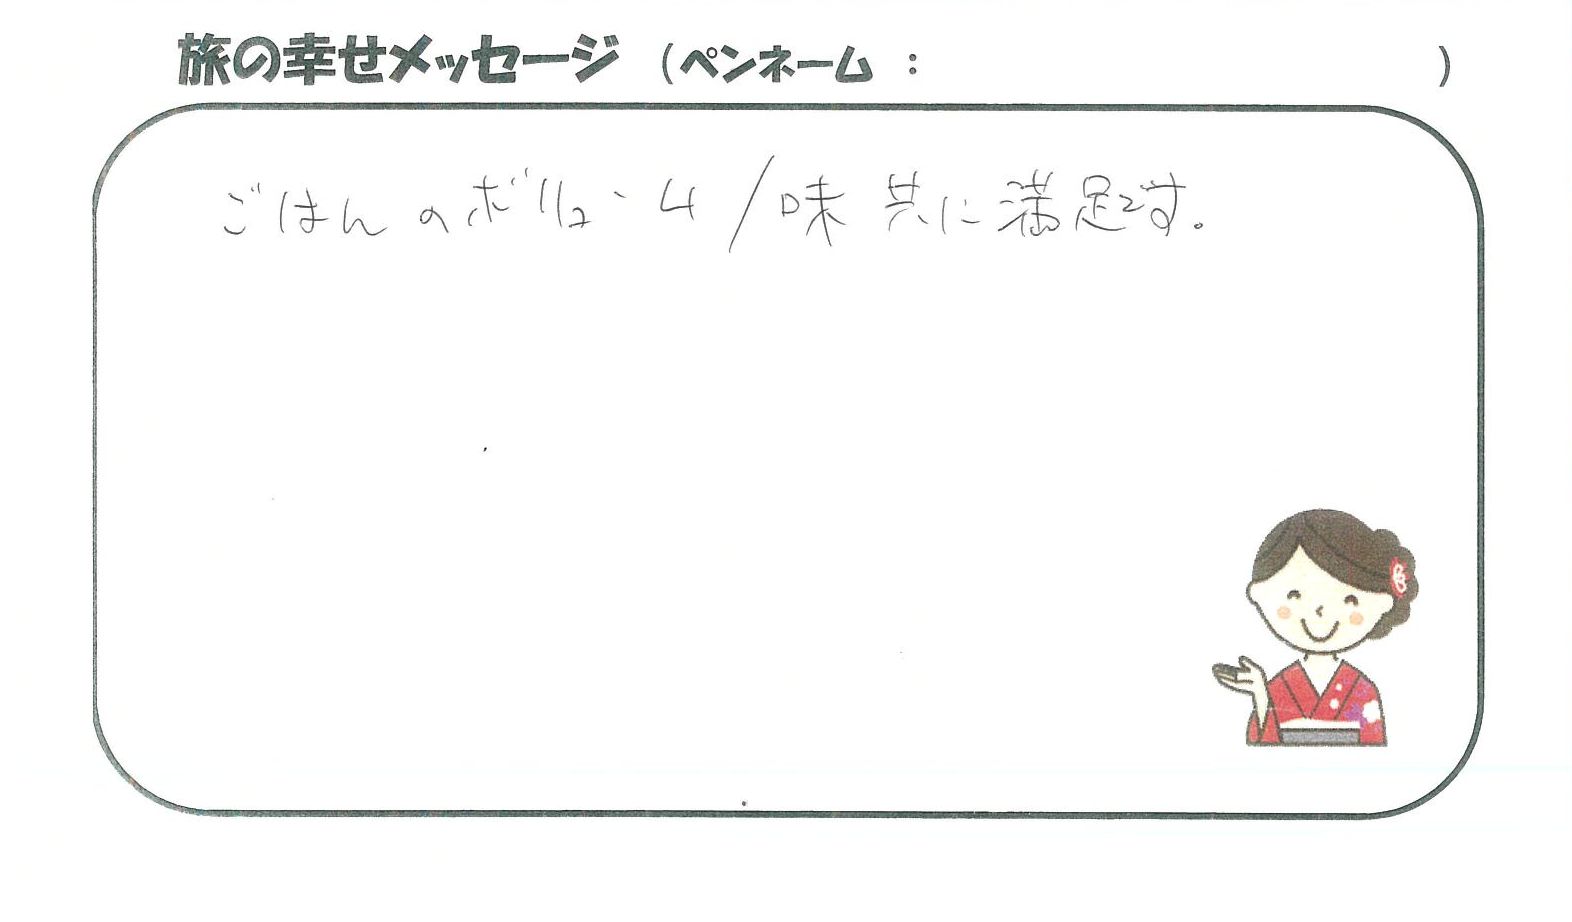 旅の幸せメッセージ (ペンネーム : )
ごはんのボリューム/味 共に満足です。